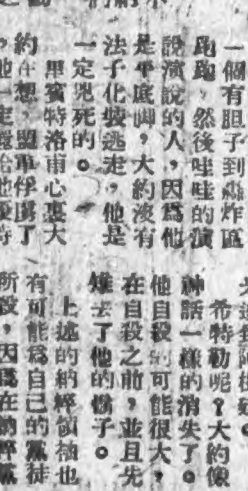 一個有胆子到轟炸區
跑跑，然後哇哇的演
說演說的人，因爲他
是平底脚，大約沒有
法子化裝逃走，他是
一定兇死的。
里賓特洛甫心裏大
約在想，盟軍俘虜了
，他一定
希特勒呢？大約像
神話一樣的消失了。
他自殺的可能很大，
在自殺之前，並且先
去了他的鬍子。
上述的納粹領袖也
有可能爲自己的黨徒
所殺，因爲在納粹黨